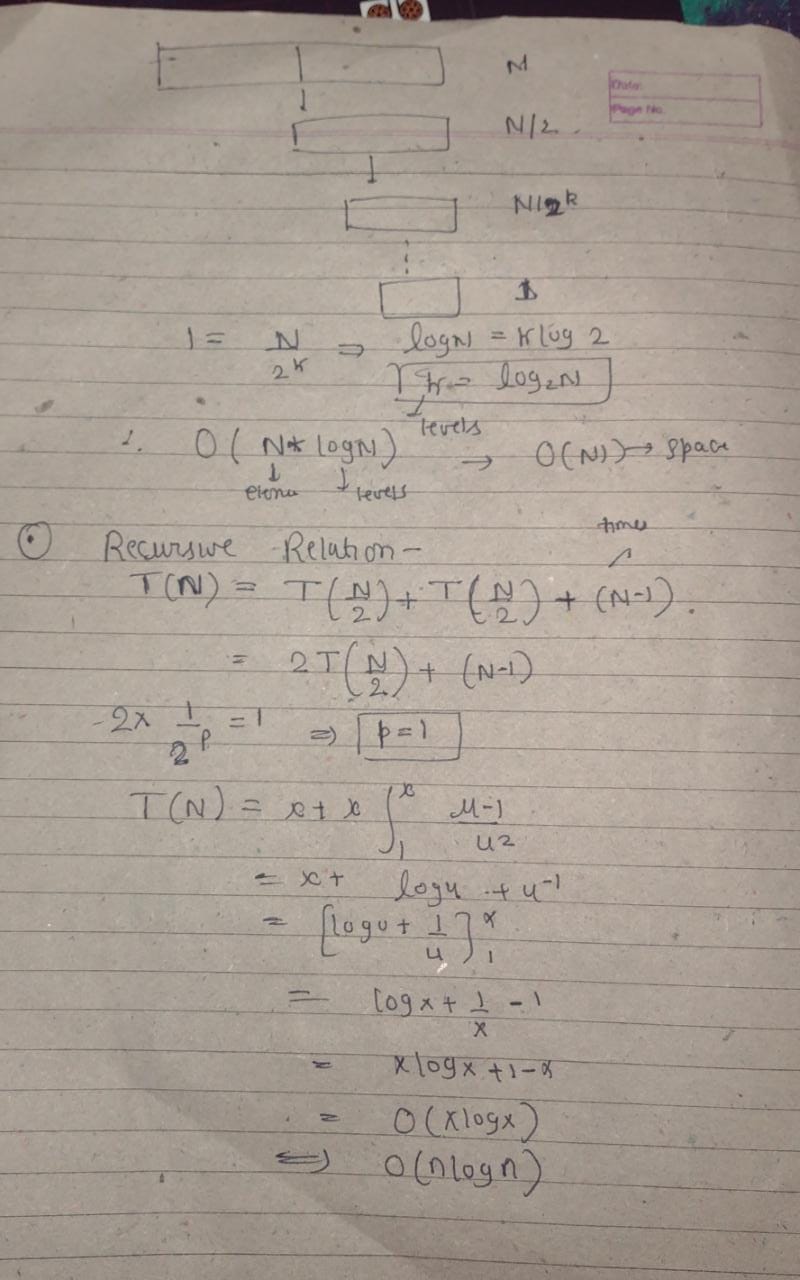 N
Date:
Page No.
N/2
N/2^k
1
1 = N/2^k ⇒ log N = k log 2
k = log₂N
levels
∴ O(N * log N) → O(N) → space
levels
times
Recursive Relation -
T(N) = T(N/2) + T(N/2) + (N-1).
= 2T(N/2) + (N-1)
2 x 1/2^p = 1 ⇒ p = 1
T(N) = x + x ∫₁ˣ u-1/u²
= x + log u + u⁻¹
= [log u + 1/u]₁ˣ
= log x + 1/x - 1
= x log x + 1 - x
= O(x log x)
⇒ O(n log n)